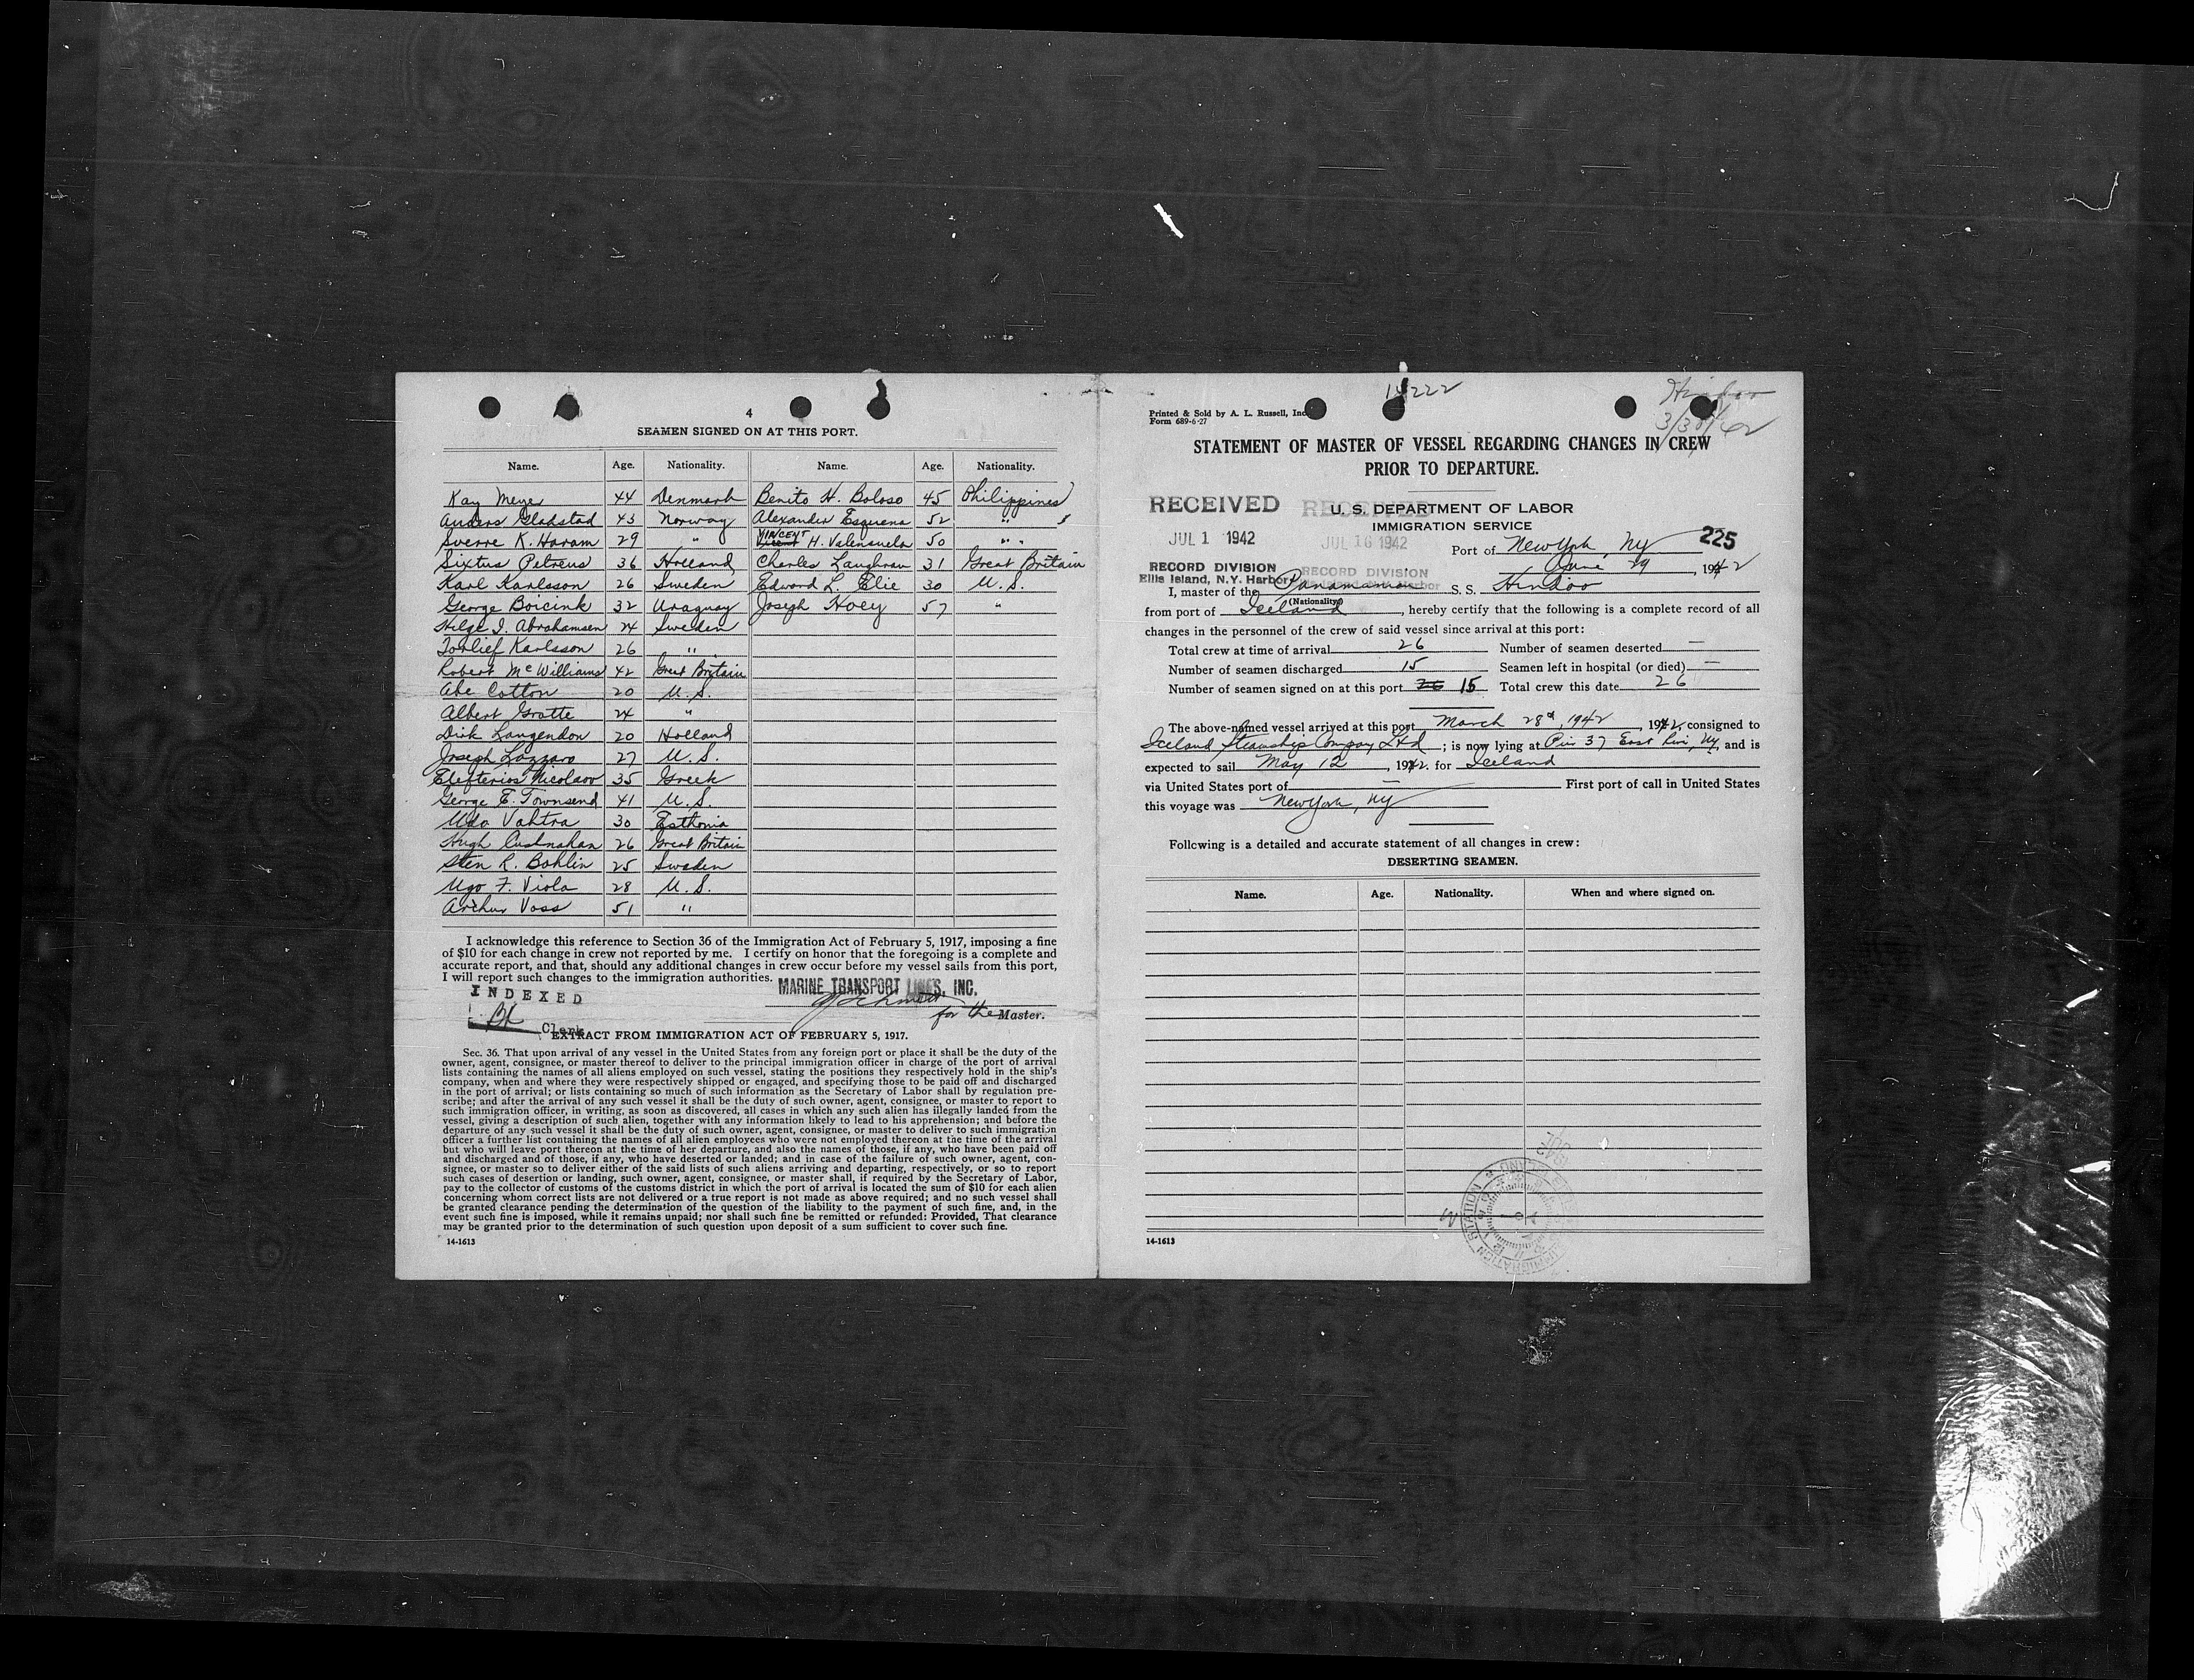 4
SEAMEN SIGNED ON AT THIS PORT.
Name. Age. Nationality. Name. Age. Nationality.
Kay Meyer 44 Denmark Benito H. Boloso 45 Philippines
Anders Gladstad 43 Norway Alexander Esquena 52 " "
Sverre K. Haram 29 " VINCENT H. Valensuela 50 " "
Sixtus Petreus 36 Holland Charles Laughran 31 Great Britain
Karl Karlsson 26 Sweden Edward L. Elie 30 U.S.
George Boicink 32 Uraguay Joseph Hoey 57 "
Helge I. Abrahamsen 24 Sweden
Torlief Karlsson 26 "
Robert McWilliams 42 Great Britain
Abe Cotton 20 U.S.
Albert Gratte 24 "
Dirk Langendon 20 Holland
Joseph Lazzaro 27 U.S.
Elefterios Nicolaov 35 Greek
George E. Townsend 41 U.S.
Udo Vahtra 30 Esthonia
Hugh Cushnahan 26 Great Britain
Sten R. Bohlin 25 Sweden
Ugo F. Viola 28 U.S.
Arthur Voss 51 "
I acknowledge this reference to Section 36 of the Immigration Act of February 5, 1917, imposing a fine
of $10 for each change in crew not reported by me. I certify on honor that the foregoing is a complete and
accurate report, and that, should any additional changes in crew occur before my vessel sails from this port,
I will report such changes to the immigration authorities.
MARINE TRANSPORT LINES, INC.
INDEXED
for the Master.
Clerk
EXTRACT FROM IMMIGRATION ACT OF FEBRUARY 5, 1917.
Sec. 36. That upon arrival of any vessel in the United States from any foreign port or place it shall be the duty of the
owner, agent, consignee, or master thereof to deliver to the principal immigration officer in charge of the port of arrival
lists containing the names of all aliens employed on such vessel, stating the positions they respectively hold in the ship's
company, when and where they were respectively shipped or engaged, and specifying those to be paid off and discharged
in the port of arrival; or lists containing so much of such information as the Secretary of Labor shall by regulation pre-
scribe; and after the arrival of any such vessel it shall be the duty of such owner, agent, consignee, or master to report to
such immigration officer, in writing, as soon as discovered, all cases in which any such alien has illegally landed from the
vessel, giving a description of such alien, together with any information likely to lead to his apprehension; and before the
departure of any such vessel it shall be the duty of such owner, agent, consignee, or master to deliver to such immigration
officer a further list containing the names of all alien employees who were not employed thereon at the time of the arrival
but who will leave port thereon at the time of her departure, and also the names of those, if any, who have been paid off
and discharged and of those, if any, who have deserted or landed; and in case of the failure of such owner, agent, con-
signee, or master so to deliver either of the said lists of such aliens arriving and departing, respectively, or so to report
such cases of desertion or landing, such owner, agent, consignee, or master shall, if required by the Secretary of Labor,
pay to the collector of customs of the customs district in which the port of arrival is located the sum of $10 for each alien
concerning whom correct lists are not delivered or a true report is not made as above required; and no such vessel shall
be granted clearance pending the determination of the question of the liability to the payment of such fine, and, in the
event such fine is imposed, while it remains unpaid; nor shall such fine be remitted or refunded: Provided, That clearance
may be granted prior to the determination of such question upon deposit of a sum sufficient to cover such fine.
14-1613
14222
Hindoo
Printed & Sold by A. L. Russell, Inc.
Form 689-6-27
STATEMENT OF MASTER OF VESSEL REGARDING CHANGES IN CREW
PRIOR TO DEPARTURE.
RECEIVED RECEIVED
U. S. DEPARTMENT OF LABOR
IMMIGRATION SERVICE
JUL 1 1942 JUL 16 1942
Port of New York, NY 225
June 29, 1942
RECORD DIVISION RECORD DIVISION
Ellis Island, N.Y. Harbor
I, master of the Panamanian S. S. Hindoo
(Nationality)
from port of Iceland, hereby certify that the following is a complete record of all
changes in the personnel of the crew of said vessel since arrival at this port:
Total crew at time of arrival 26 Number of seamen deserted —
Number of seamen discharged 15 Seamen left in hospital (or died) —
Number of seamen signed on at this port 26 15 Total crew this date 26
The above-named vessel arrived at this port March 28th, 1942, 1942, consigned to
Iceland Steamship Company Ltd; is now lying at Pier 37 East Riv, Ny, and is
expected to sail May 12, 1942. for Iceland
via United States port of — First port of call in United States
this voyage was New York, Ny
Following is a detailed and accurate statement of all changes in crew:
DESERTING SEAMEN.
Name. Age. Nationality. When and where signed on.
14-1613